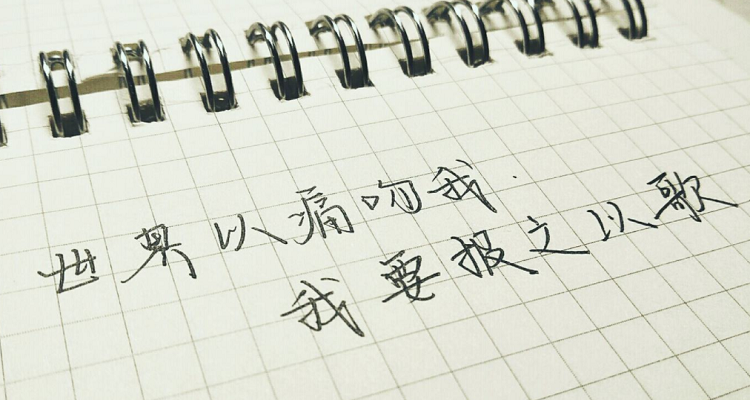 世界以痛吻我.
我要报之以歌